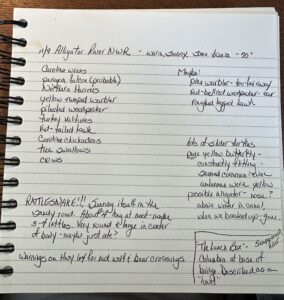 n/9 Alligator River NWR - warm, sunny, some breeze - 70°
Carolina wrens
peregrine falcon (probable)
Northern Harriers
yellow rumped warbler
pileated woodpecker
turkey vultures
Red-tailed hawk
Carolina chickadees
tree swallows
crows
Maybe:
pine warbler - too far away
Red-bellied woodpecker - ear
roughed legged hawk
lots of slider turtles
yellow butterfly -
constantly flitting -
seemed common -
antennae were yellow
possible alligator - nose?
above water in canal,
when we backed up - gone.
RATTLESNAKE!!! Sunning itself on the
sandy road. About 4' long at most - maybe
5-7 rattles. Very round & large in center
of body - maybe just ate?
Warnings on they for red wolf & bear crossings
"The Lunch Box" -
Columbia at base of
bridge. Described as a
"hoot"